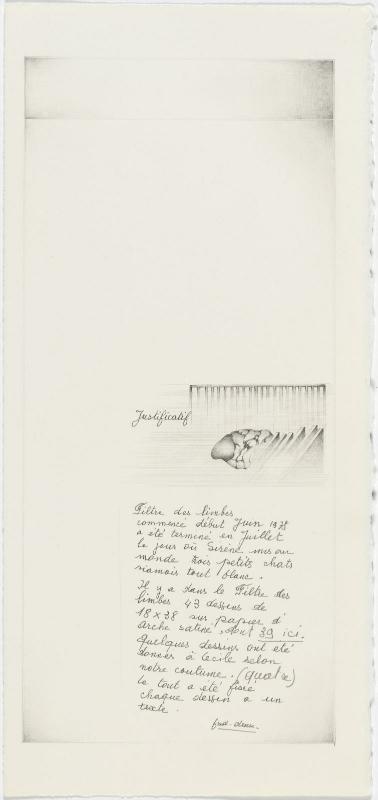 Justificatif
Filtre des limbes
commencé début Juin 1978
a été terminé en Juillet
le jour où Sirène mis au
monde trois petits chats
siamois tout blanc.
Il y a dans le Filtre des
limbes 43 dessins de
18 x 38 sur papier d'
Arche satiné, dont 39 ici.
Quelques dessins ont été
donnés à Cécile selon
notre coutume. (Quatre)
le tout a été fixé
chaque dessin a un
texte.
fred-deux.